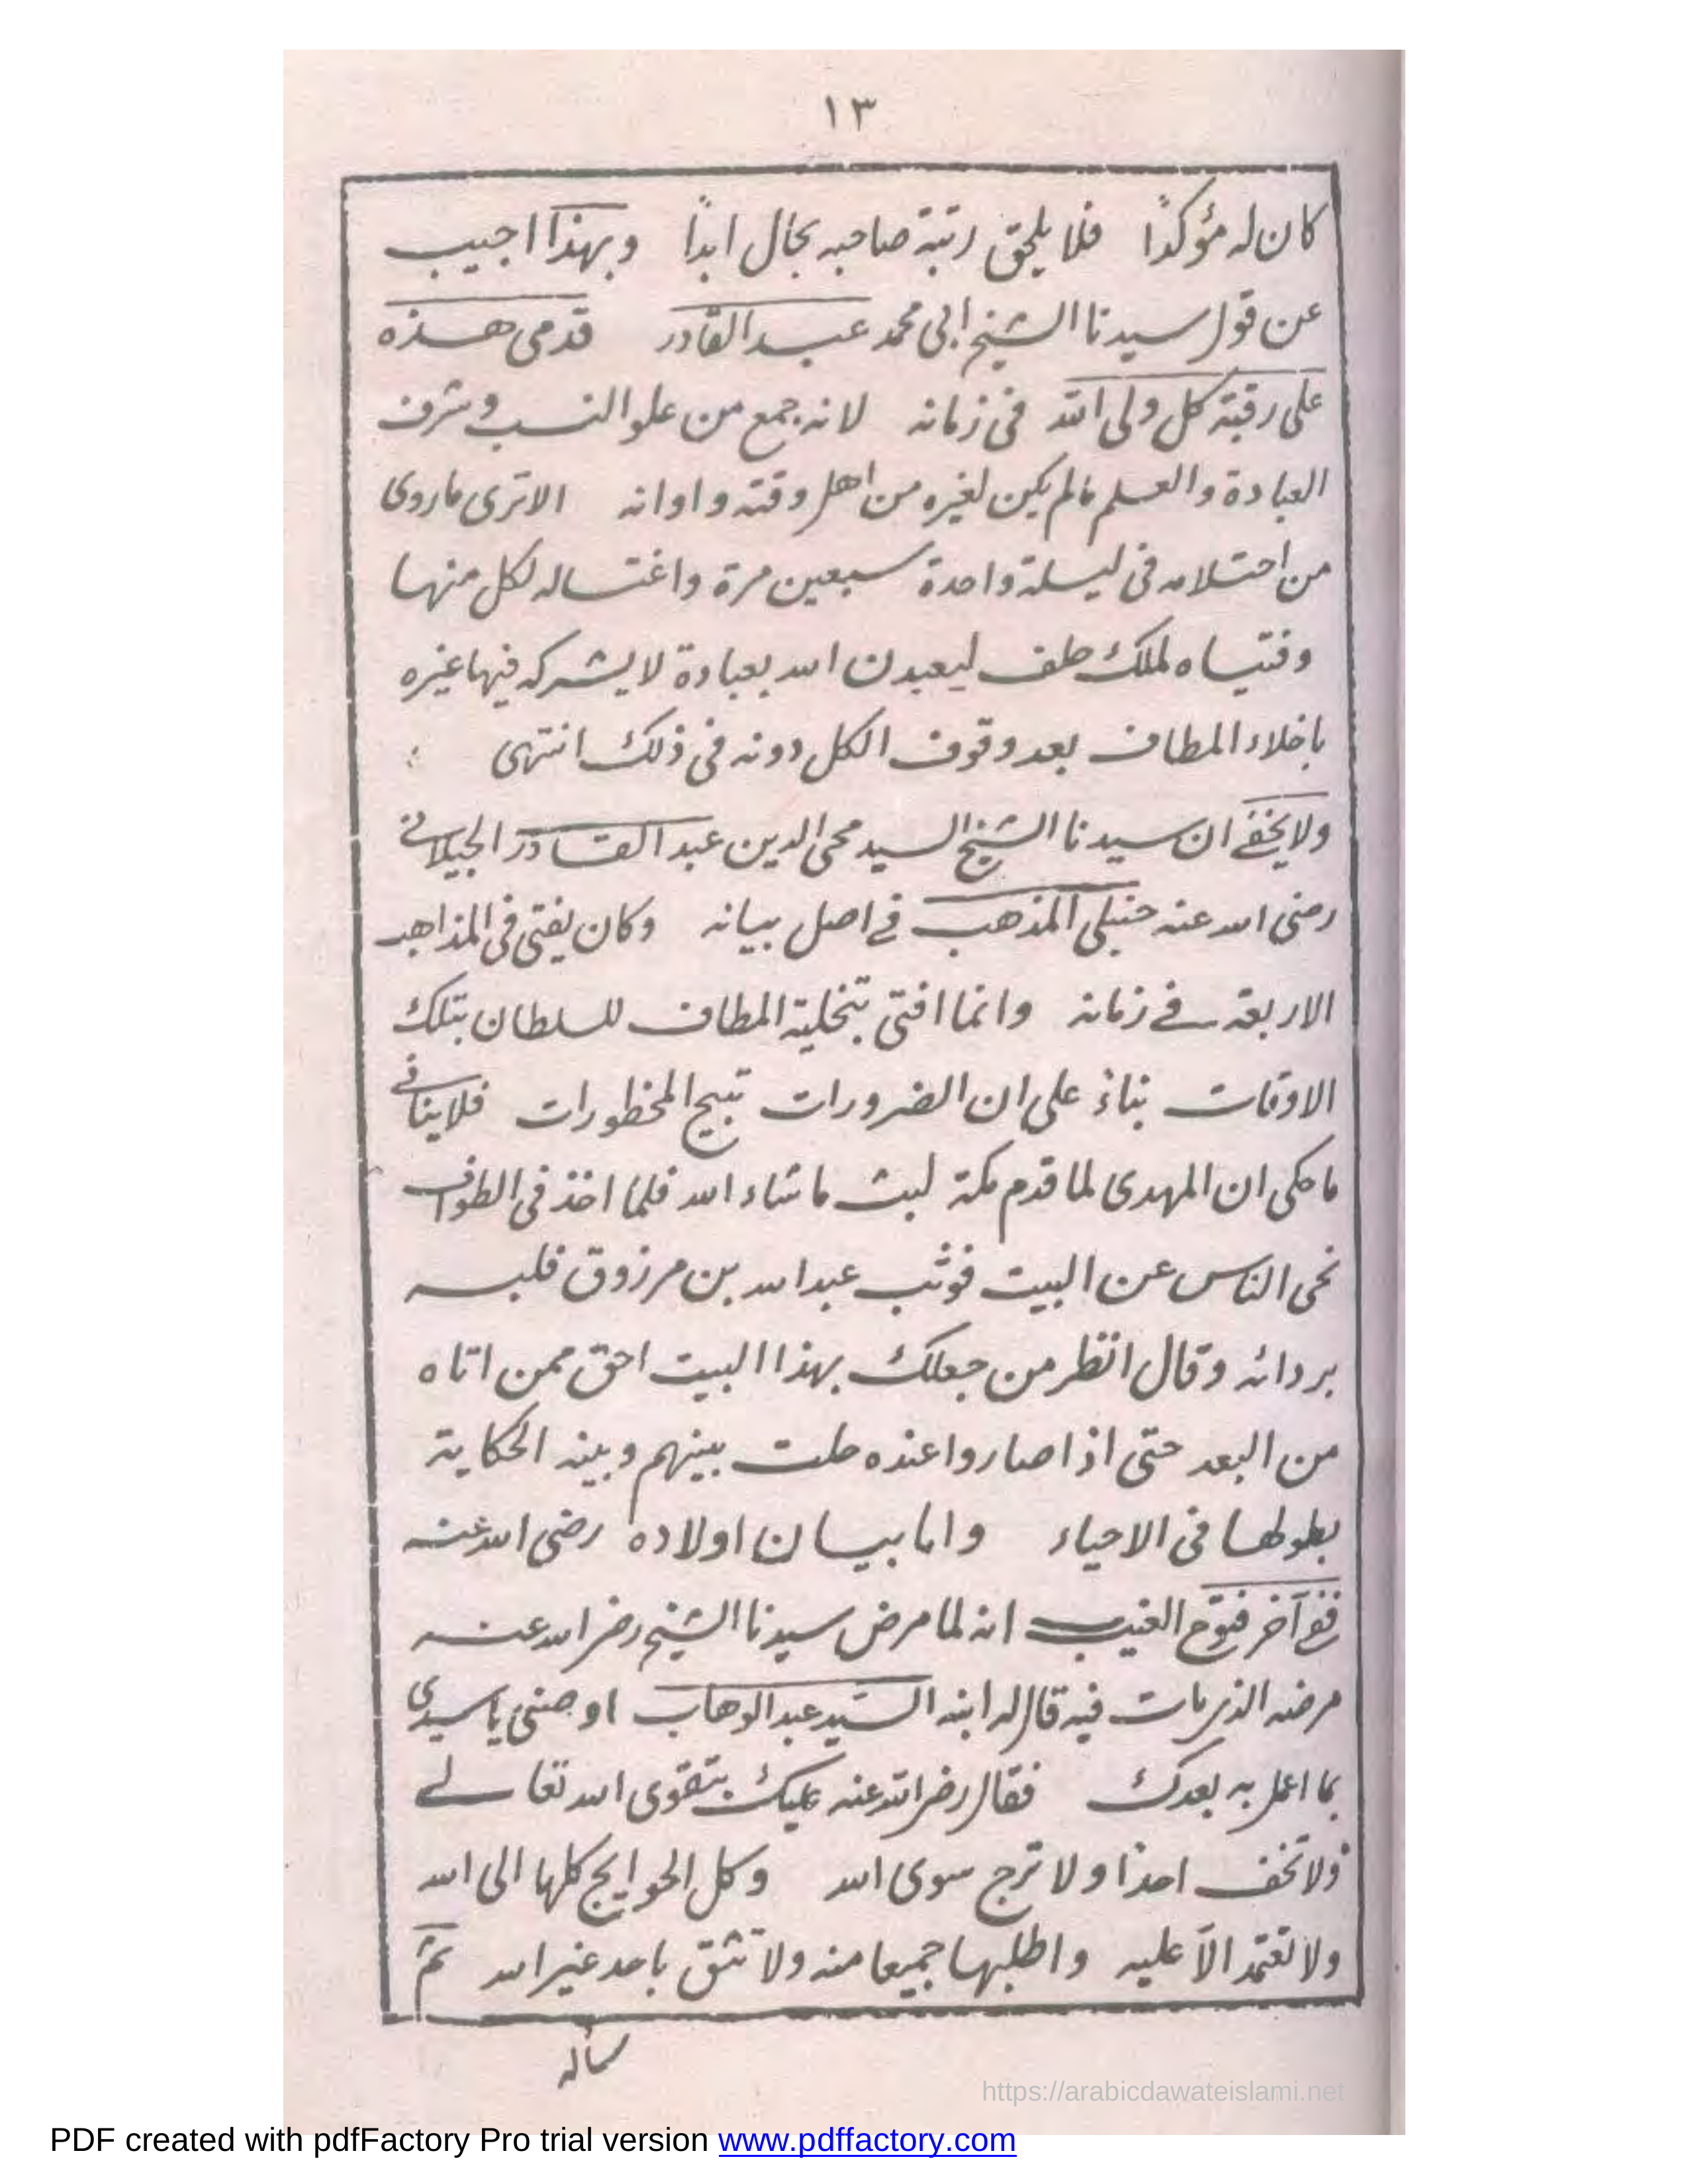 ١٣
كان له مؤكدًا فلا يلحق رتبة صاحبه بحال ابدًا وبهذا اجيب
عن قول سيدنا الشيخ ابى محمد عبد القادر قدمى هذه
على رقبة كل ولى الله فى زمانه لانه جمع من علو النسب وشرف
العبادة والعلم مالم يكن لغيره من اهل وقته واوانه الا ترى ماروى
من احتلامه فى ليلة واحدة سبعين مرة واغتساله لكل منها
وفتياه لملك حلف ليعبدن الله بعبادة لا يشركه فيها غيره
باخلاء المطاف بعد وقوف الكل دونه فى ذلك انتهى
ولا يخفے ان سيدنا الشيخ السيد محى الدين عبد القادر الجيلانے
رضى الله عنه حنبلى المذهب فے اصل بيانه وكان يفتى فى المذاهب
الاربعة فے زمانه وانما افتى بتخلية المطاف للسلطان بتلك
الاوقات بناءً على ان الضرورات تبيح المحظورات فلا ينافے
ما حكى ان المهدى لما قدم مكة لبث ما شاء الله فلما اخذ فى الطواف
نحى الناس عن البيت فوثب عبد الله بن مرزوق فلببه
بردائه وقال انظر من جعلك بهذا البيت احق ممن اتاه
من البعد حتى اذا صاروا عنده حلت بينهم وبينه الحكاية
بطولها فى الاحياء واما بيان اولاده رضى الله عنه
ففے آخر فتوح الغيب انه لما مرض سيدنا الشيخ رضى الله عنه
مرضه الذى مات فيه قال له ابنه السيد عبد الوهاب اوصنى يا سيدى
بما اعمل به بعدك فقال رضى الله عنه عليك بتقوى الله تعالے
ولا تخف احدًا ولا ترج سوى الله وكل الحوايج كلها الى الله
ولا تعتمد الا عليه واطلبها جميعا منه ولا تثق باحد غير الله ثم
سأله
https://arabicdawateislami.net
PDF created with pdfFactory Pro trial version www.pdffactory.com